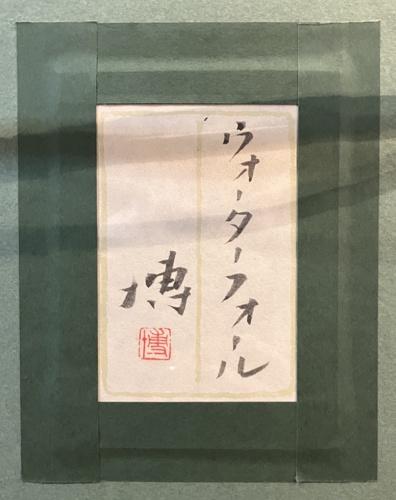 ウォーターフォール
博
博